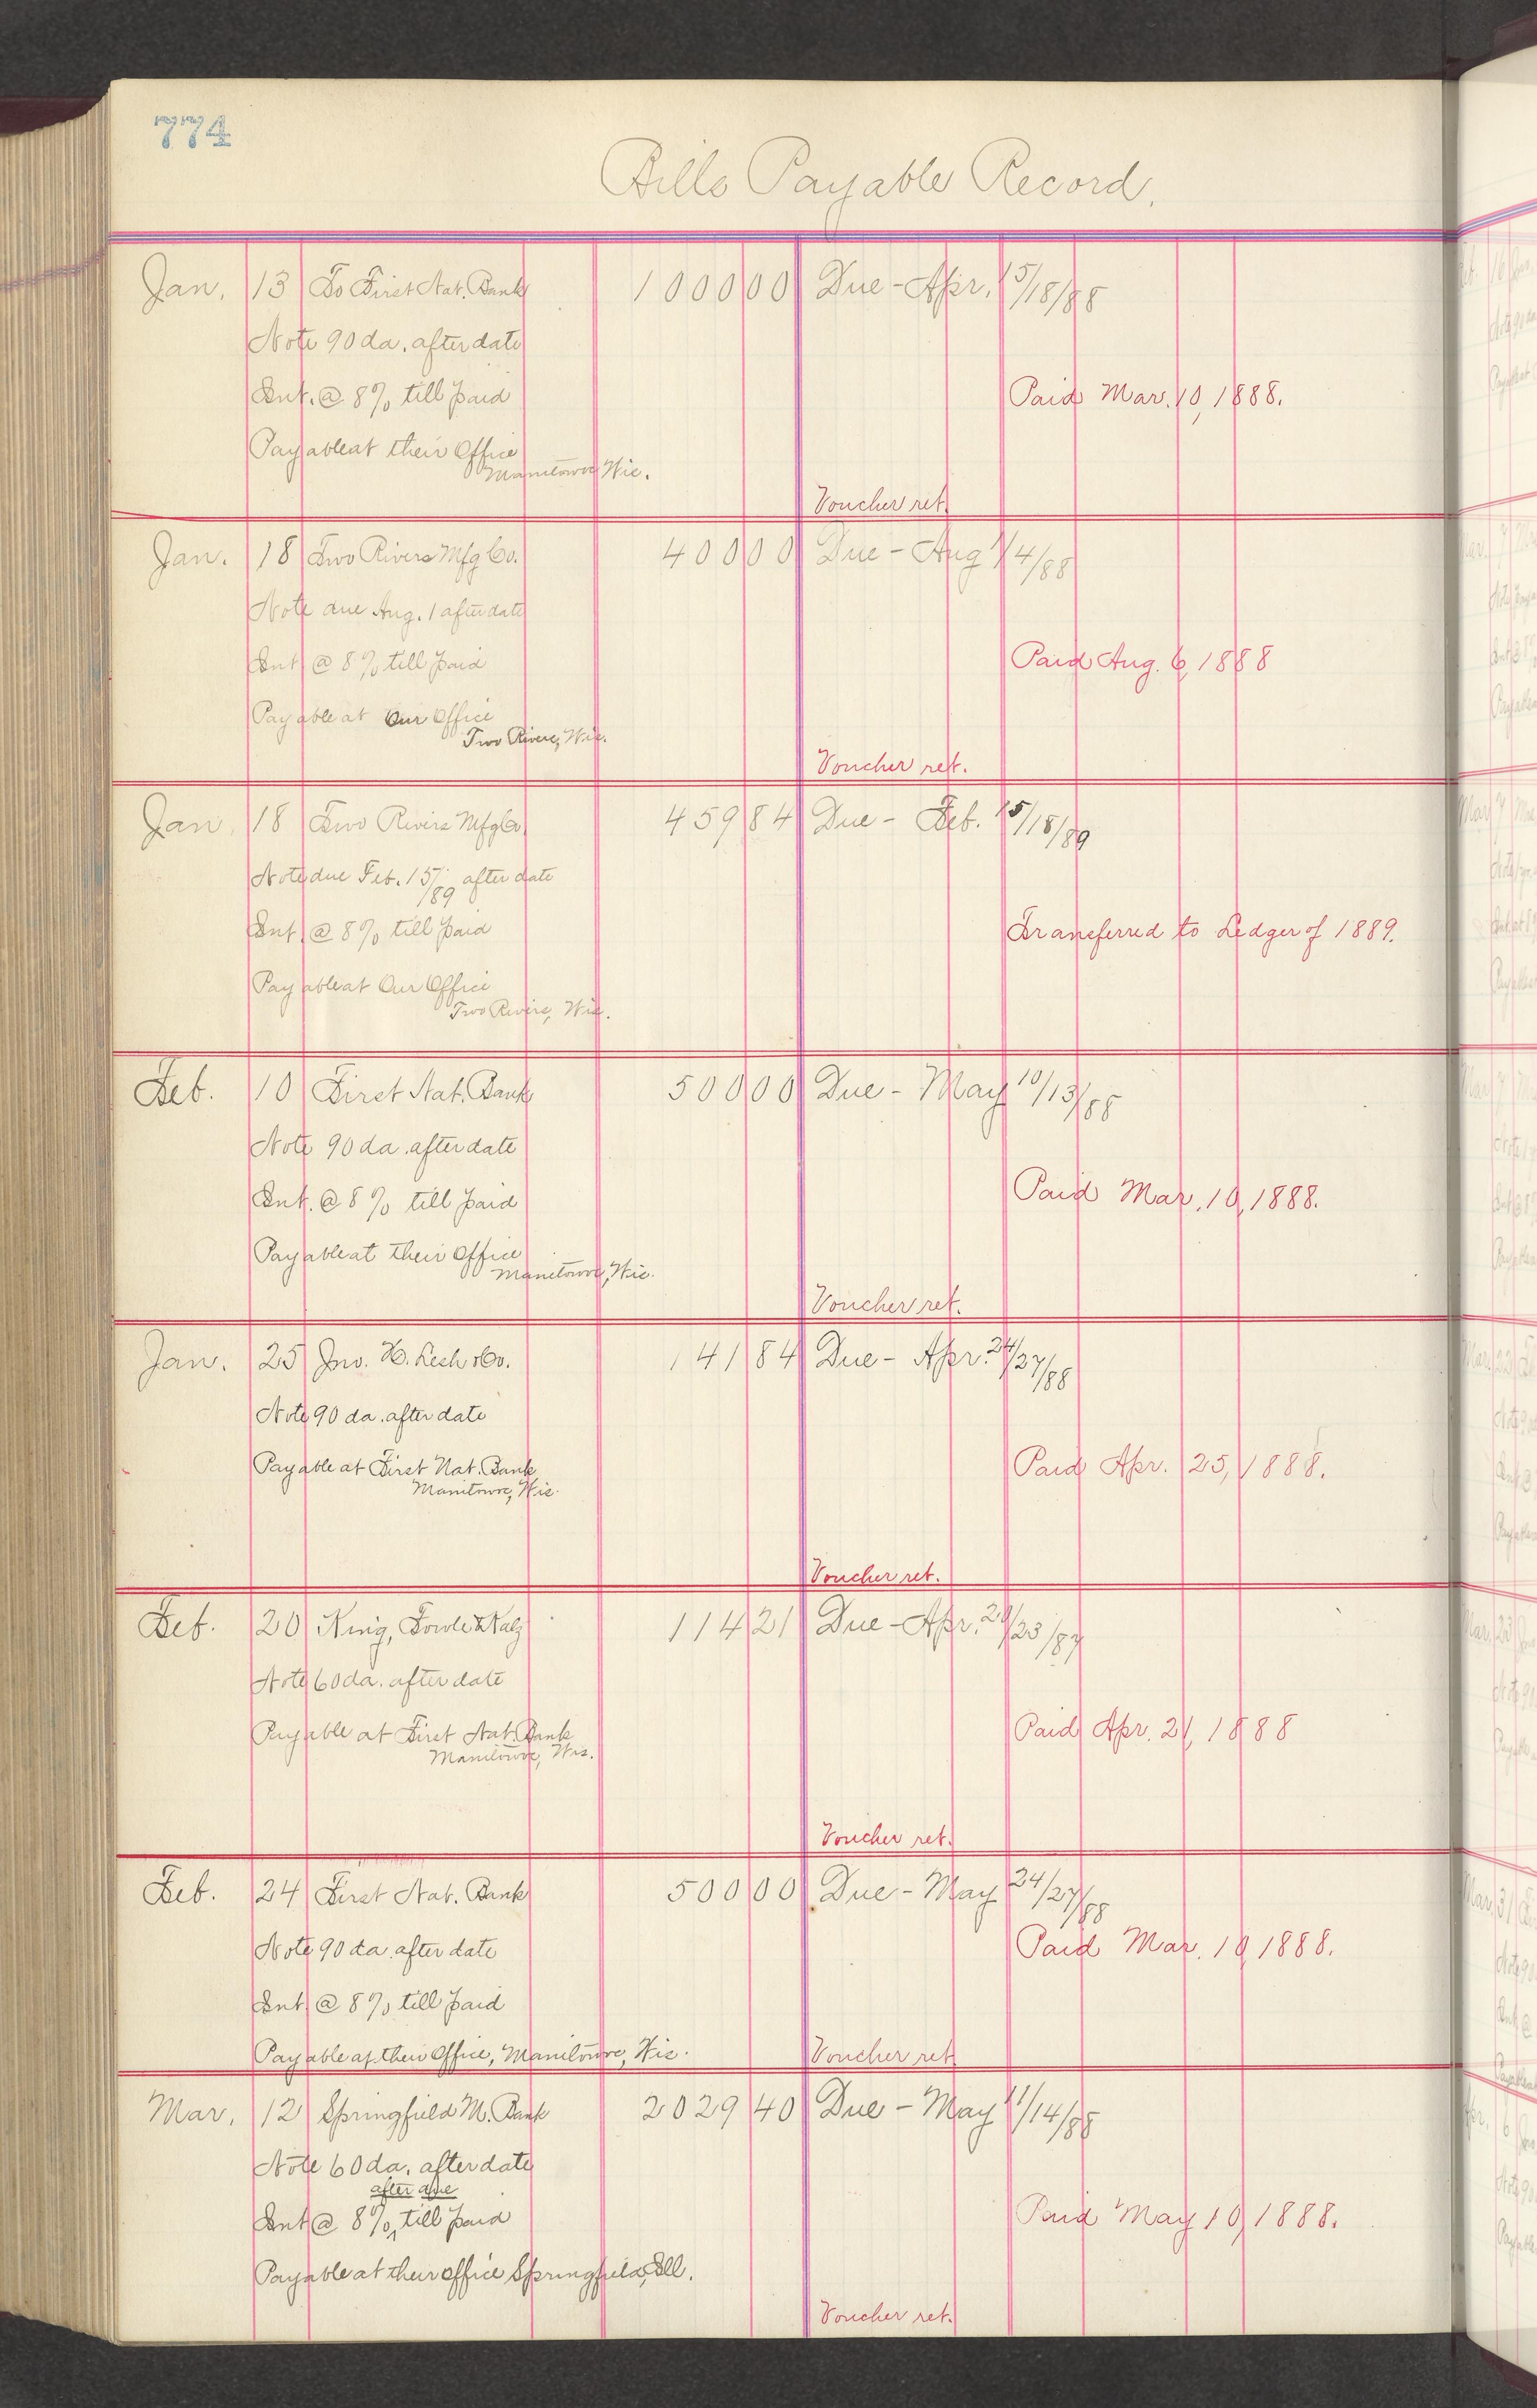 774
Bills Payable Record.
Jan. 13 To First Nat. Bank 1 0 0 0 00 Due - Apr. 15/18/88
Note 90 da. after date
Int. @ 8% till paid Paid Mar. 10, 1888.
Payable at their Office
Manitowoc Wis.
Voucher ret.
Jan. 18 Two Rivers Mfg Co. 4 0 0 00 Due - Aug 1/4/88
Note due Aug. 1 after date
Int @ 8% till paid Paid Aug. 6, 1888
Payable at Our Office
Two Rivers, Wis.
Voucher ret.
Jan. 18 Two Rivers Mfg Co 4 5 9 84 Due - Feb. 15/18/89
Note due Feb. 15/89 after date
Int. @ 8% till paid Transferred to Ledger of 1889.
Payable at Our Office
Two Rivers, Wis.
Feb. 10 First Nat. Bank 5 0 0 00 Due - May 10/13/88
Note 90 da. after date
Int. @ 8% till paid Paid Mar. 10, 1888.
Payable at their Office
Manitowoc, Wis.
Voucher ret.
Jan. 25 Jno. H. Lesh & Co. 1 4 1 84 Due - Apr. 24/27/88
Note 90 da. after date
Payable at First Nat. Bank Paid Apr. 25, 1888.
Manitowoc, Wis.
Voucher ret.
Feb. 20 King, Fowle & Katz 1 1 4 21 Due - Apr. 20/23/87
Note 60 da. after date
Payable at First Nat. Bank Paid Apr. 21, 1888
Manitowoc, Wis.
Voucher ret.
Feb. 24 First Nat. Bank 5 0 0 00 Due - May 24/27/88
Note 90 da. after date Paid Mar. 10, 1888.
Int @ 8% till paid
Payable at their Office, Manitowoc, Wis. Voucher ret
Mar. 12 Springfield M. Bank 2 0 2 9 40 Due - May 11/14/88
Note 60 da. after date
after due
Int @ 8%, till paid Paid May 10, 1888.
Payable at their office Springfield, Ill.
Voucher ret.